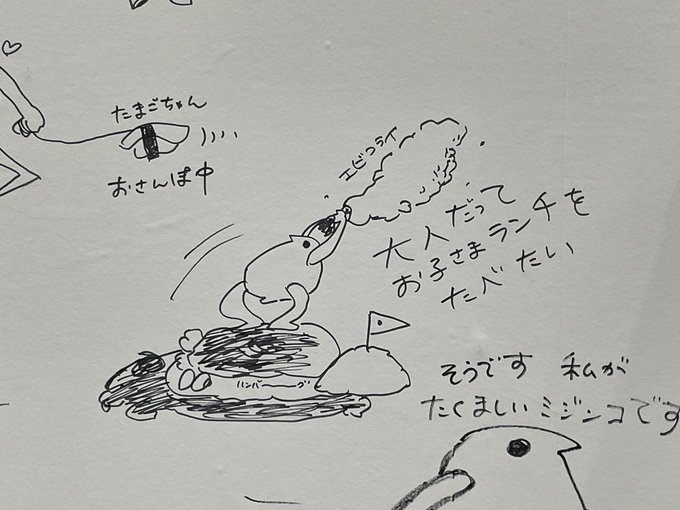 たまごちゃん
おさんぽ中
エビフライ
大人だって
お子さまランチを
たべたい
ハンバーーーグ
そうです 私が
たくましいミジンコです